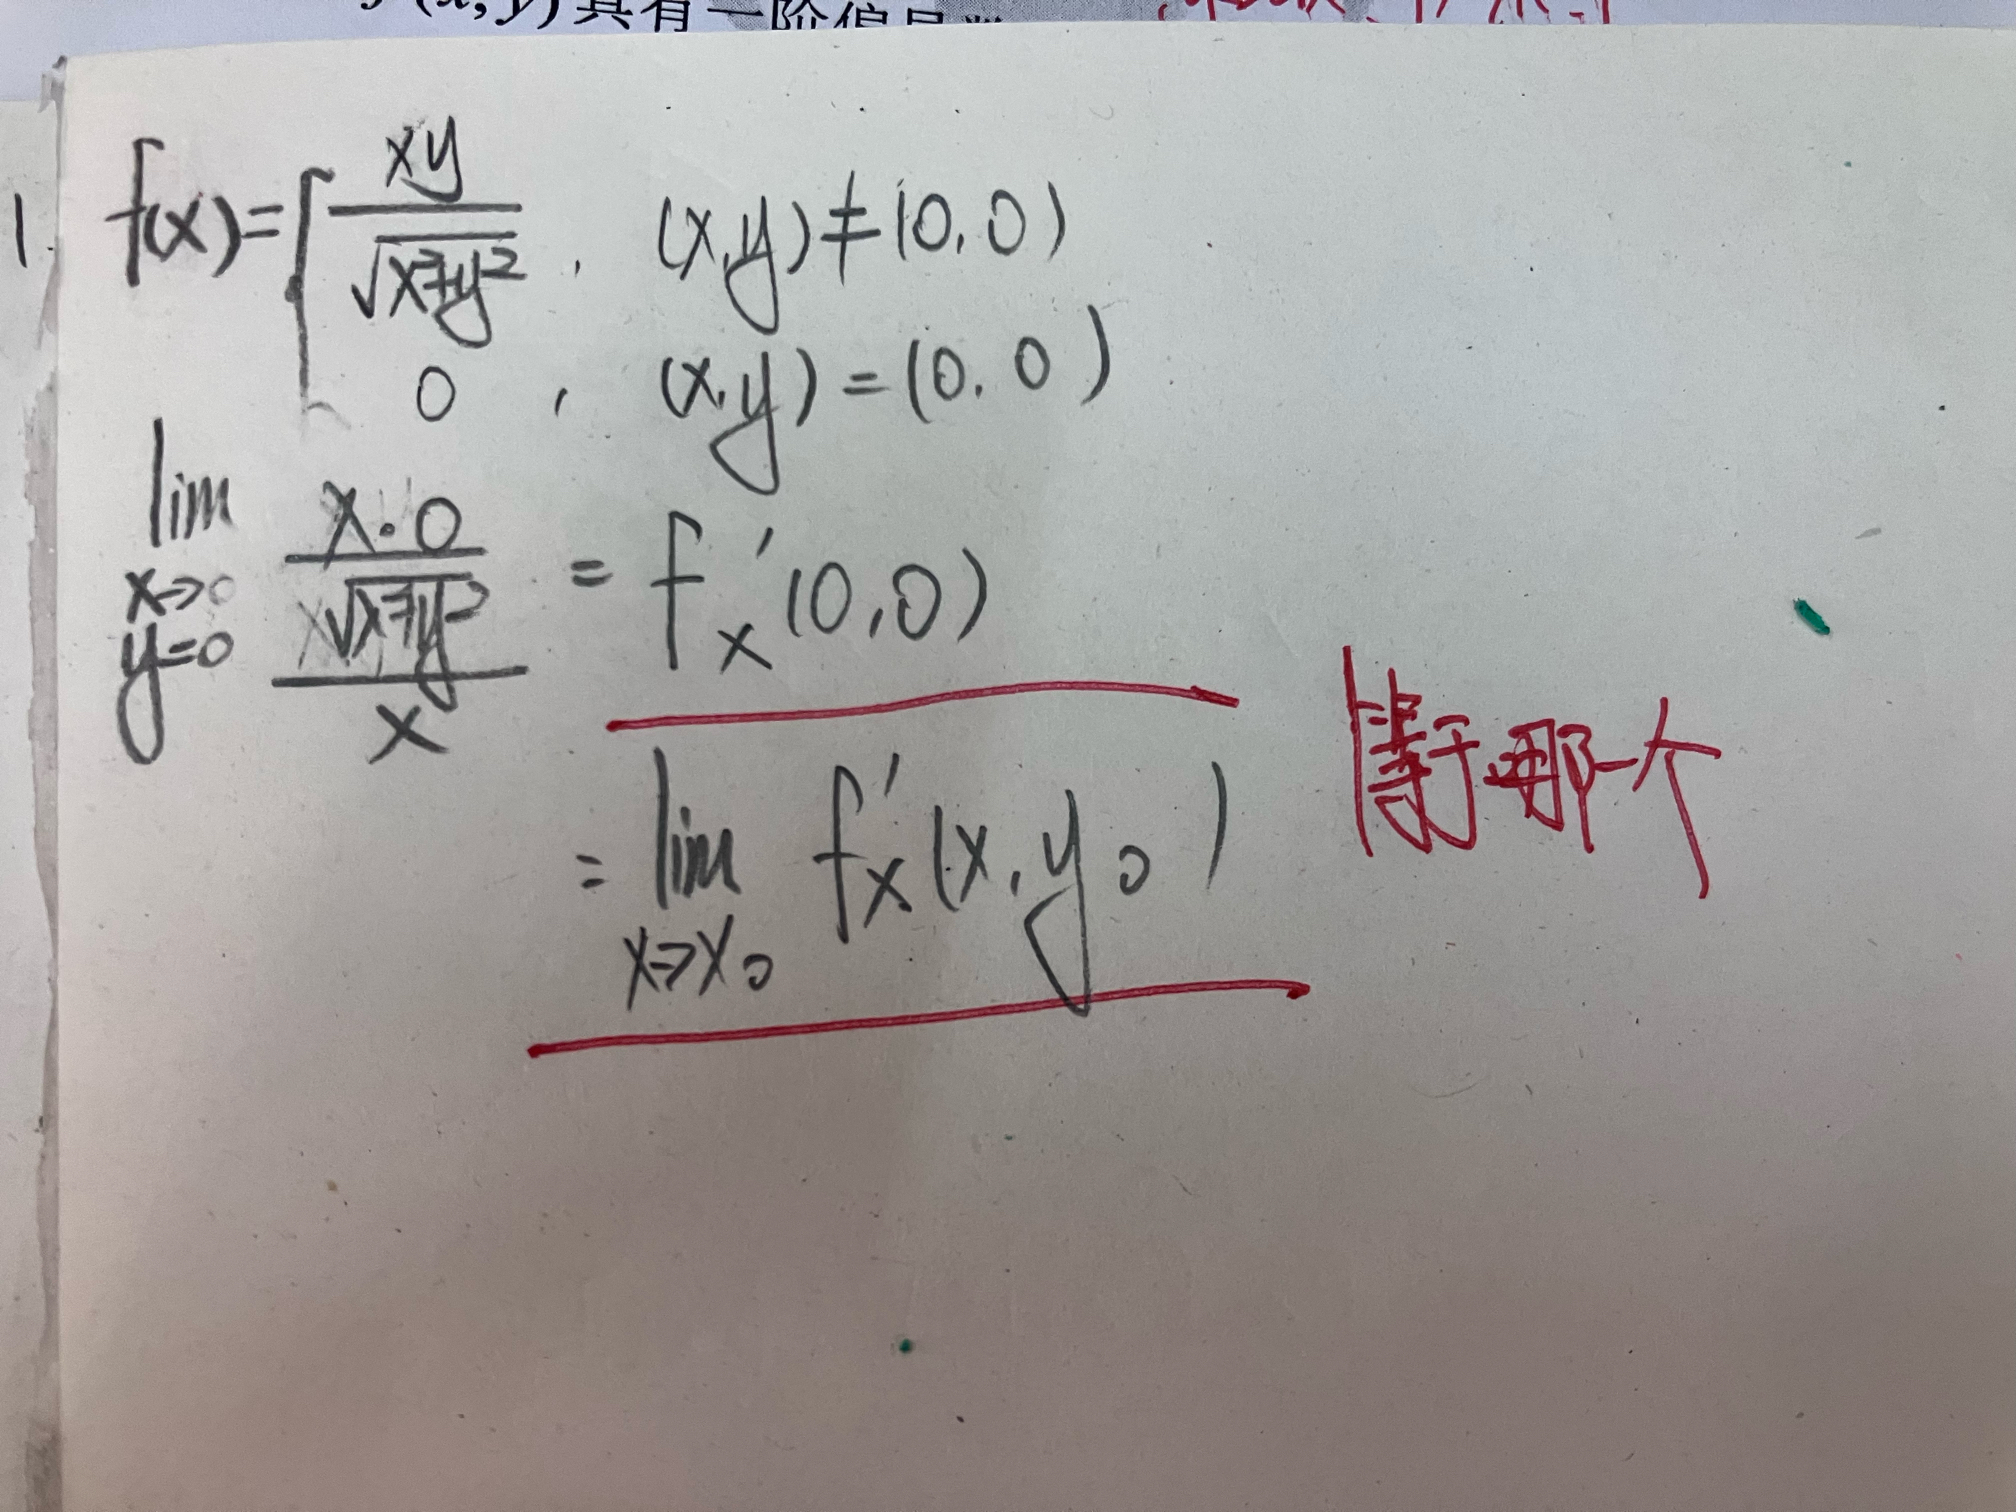 (x, y) 具有一阶偏导数
1. f(x) = { xy / √(x²+y²) , (x,y) ≠ (0,0)
0 , (x,y) = (0,0)
lim x→0 y=0 (x·0 / √(x²+y²)) / x = f'x (0,0)
= lim x→x₀ f'x (x, y₀) 等于哪一个